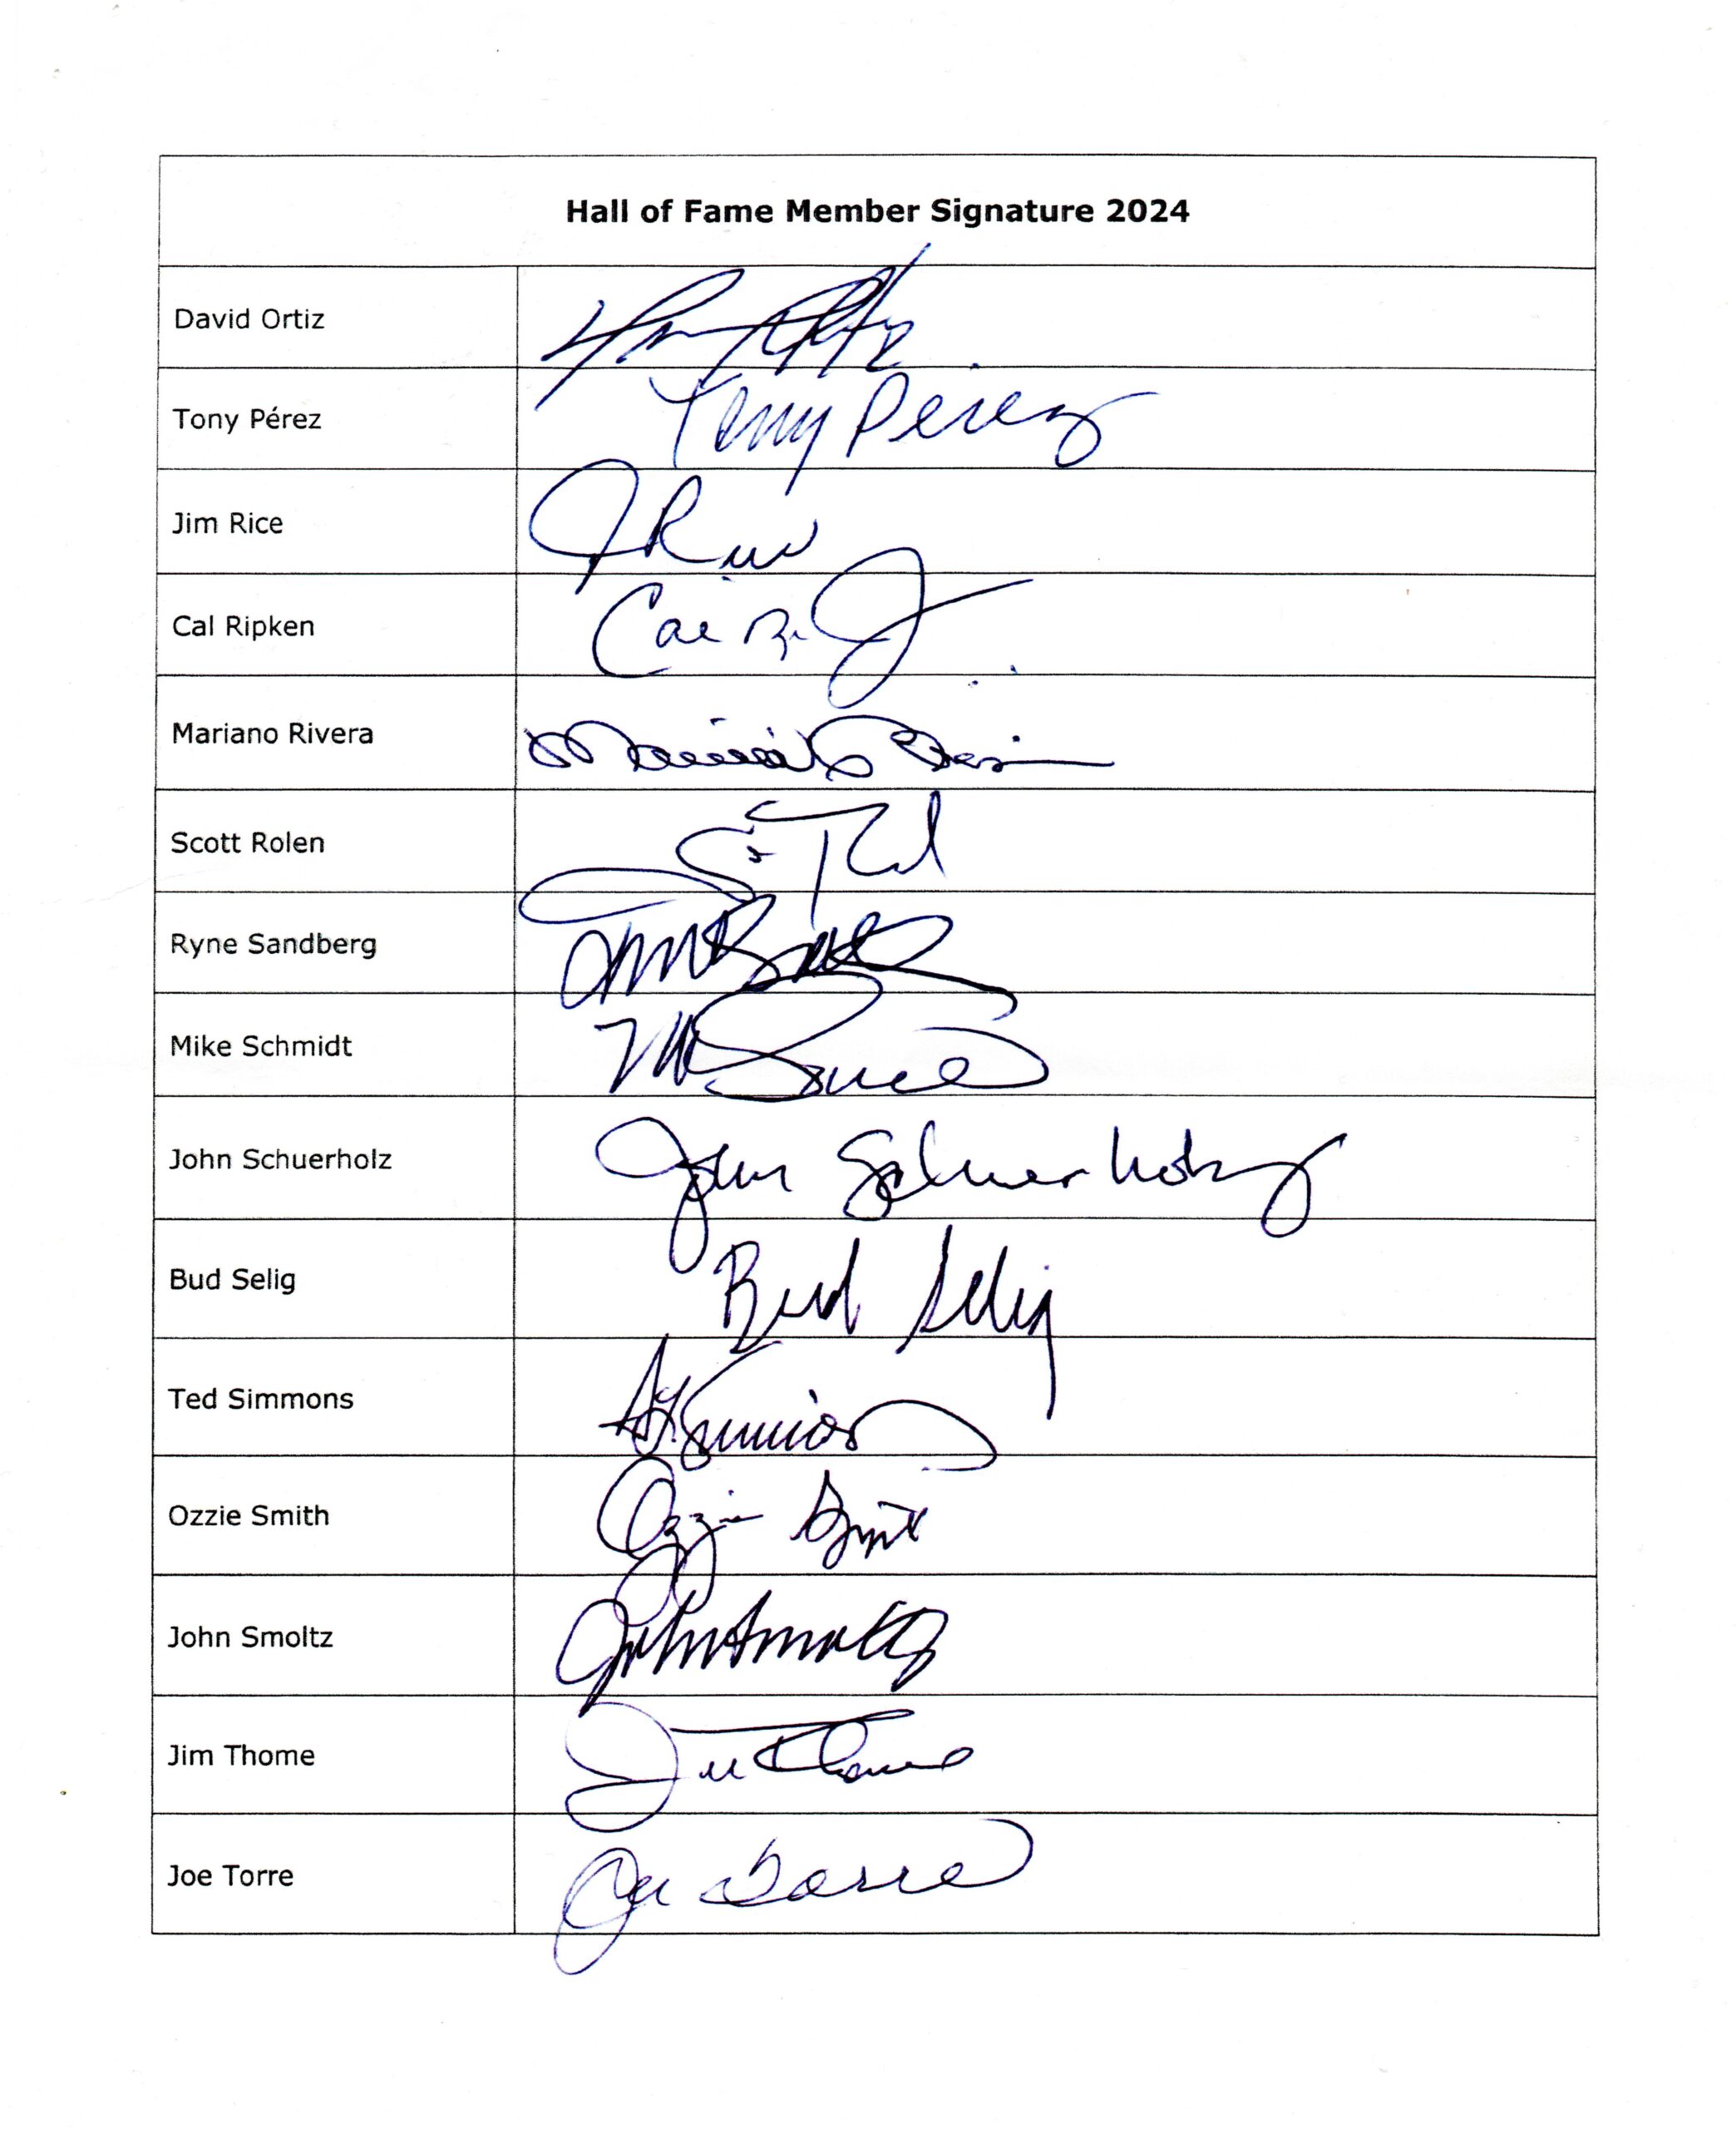 Hall of Fame Member Signature 2024
David Ortiz
Tony Pérez Tony Perez
Jim Rice J Rice
Cal Ripken Cal
Mariano Rivera
Scott Rolen
Ryne Sandberg
Mike Schmidt
John Schuerholz John Schuerholz
Bud Selig Bud Selig
Ted Simmons
Ozzie Smith Ozzie Smith
John Smoltz John Smoltz
Jim Thome Jim Thome
Joe Torre Joe Torre